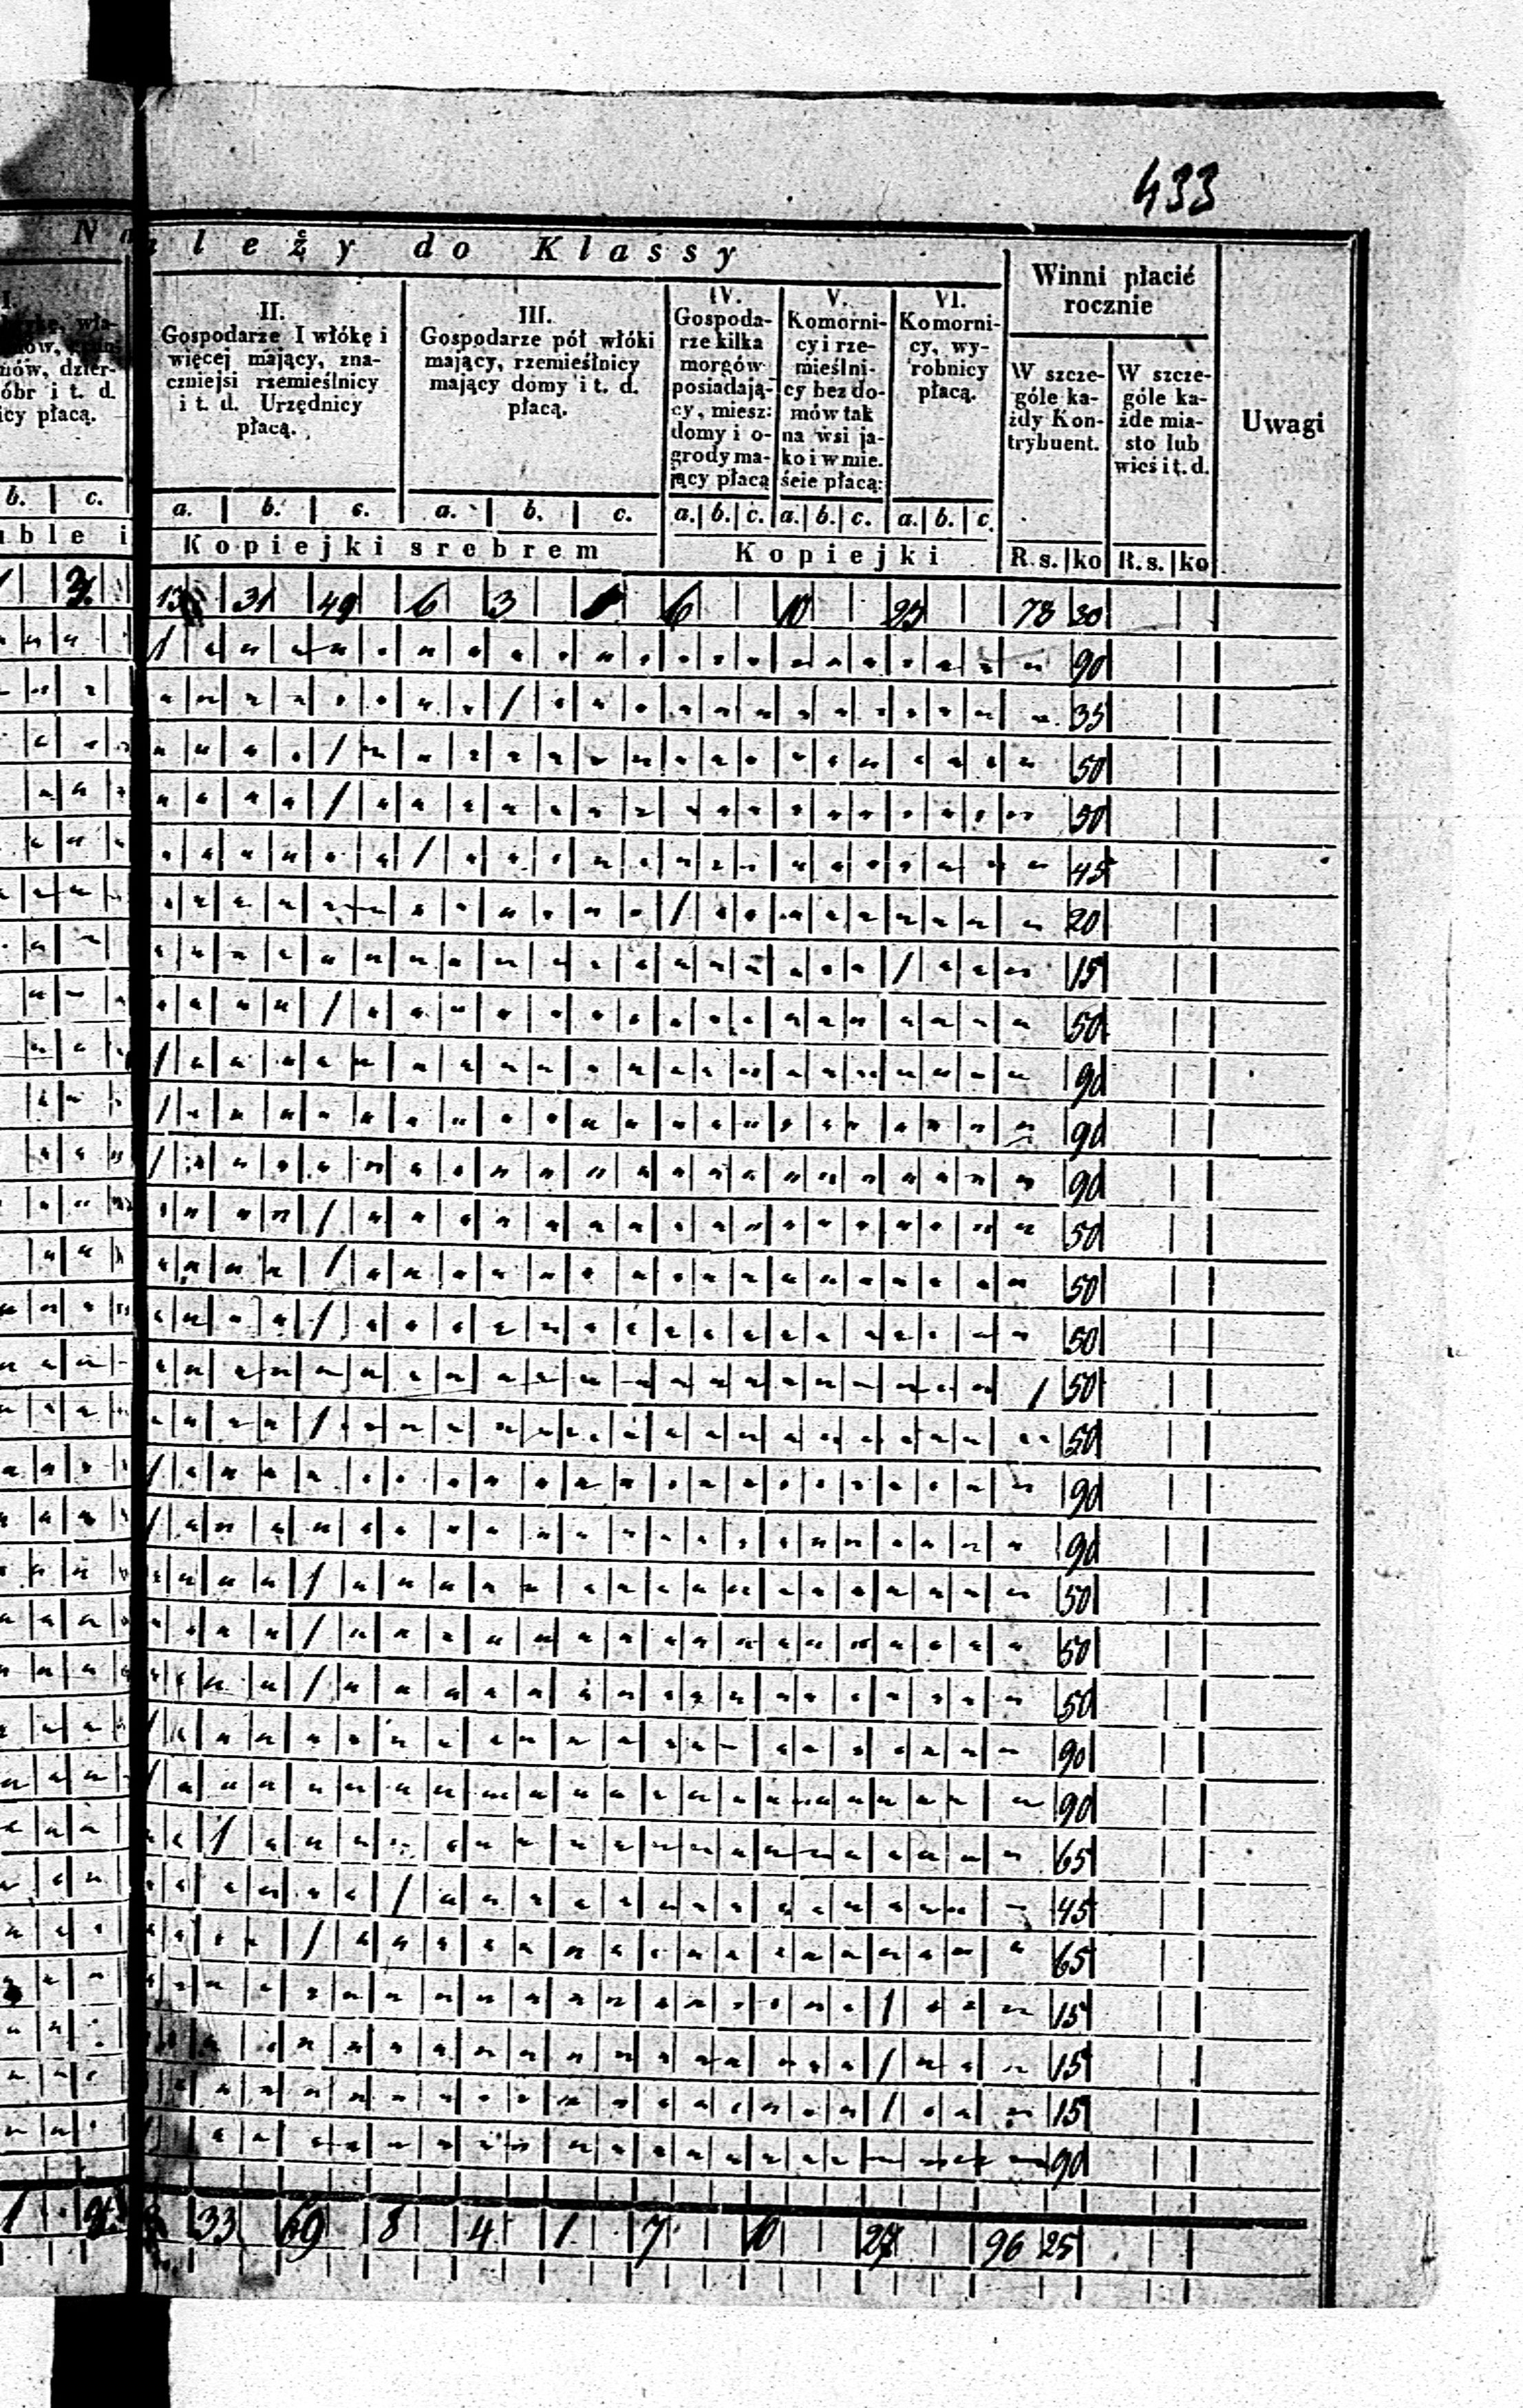 433
Należy do Klassy
Winni płacić
rocznie
Uwagi
I.
II.
Gospodarze I włókę i
więcej mający, zna-
czniejsi rzemieślnicy
i t. d. Urzędnicy
płacą.
III.
Gospodarze pół włóki
mający, rzemieślnicy
mający domy i t. d.
płacą.
IV.
Gospoda-
rze kilka
morgów
posiadają-
cy, miesz:
domy i o-
grody ma-
jący płacą
V.
Komorni-
cy i rze-
mieślni-
cy bez do-
mów tak
na wsi ja-
ko i w mie.
ście płacą:
VI.
Komorni-
cy, wy-
robnicy
płacą.
W szcze-
góle ka-
żdy Kon-
trybuent.
W szcze-
góle ka-
żde mia-
sto lub
wieś i t. d.
b. c. a. b. c. a. b. c. a. b. c. a. b. c. a. b. c.
Kopiejki srebrem Kopiejki R.s. ko R.s. ko
31 49 6 3 6 10 25 78 30
1 90
1 35
1 50
1 50
1 45
1 20
1 15
1 50
1 90
1 90
1 90
1 50
1 50
1 50
1 50
1 50
1 90
1 90
1 50
1 50
1 50
1 90
1 90
1 65
1 45
1 65
1 15
1 15
1 15
90
33 69 8 4 1 7 10 27 96 25